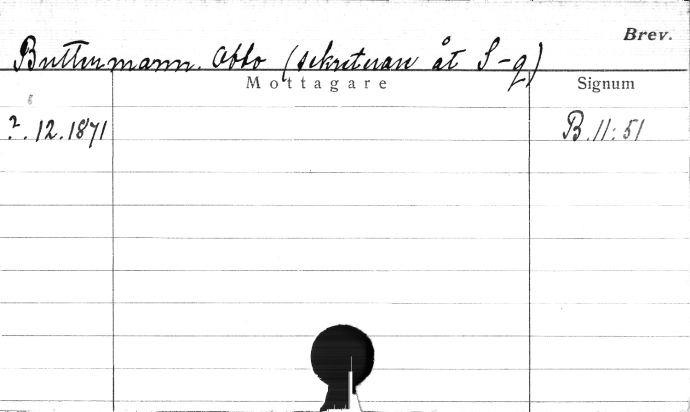 Brev.
Buttermann. Otto (sekreterare åt S-g)
Mottagare Signum
?.12.1871 B.11:51